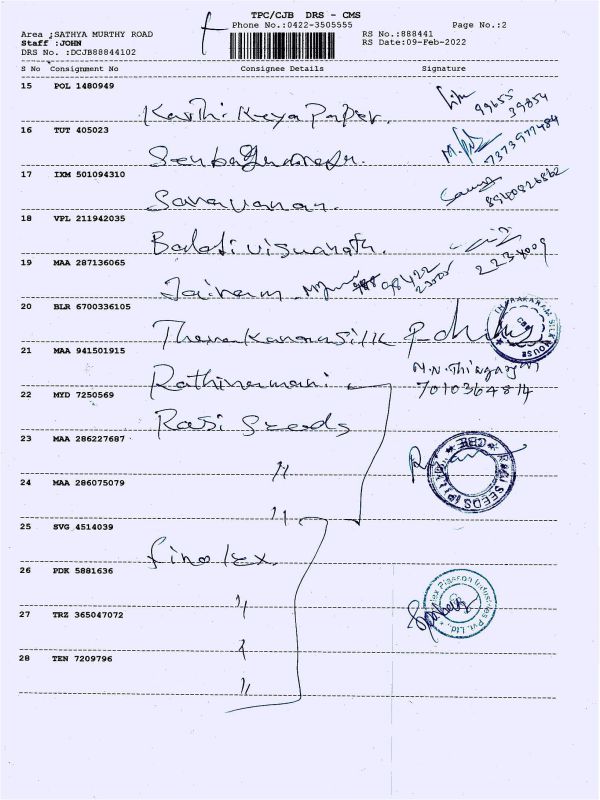 TPC/CJB DRS - CMS
Area ;SATHYA MURTHY ROAD Phone No.:0422-3505555 Page No.:2
Staff :JOHN RS No.:888441
DRS No. :DCJB88844102 RS Date:09-Feb-2022
S No Consignment No Consignee Details Signature
15 POL 1480949
Karthikeya Paper. 99655 39854
16 TUT 405023
7373977484
17 IXM 501094310
Saravanan. 8940826862
18 VPL 211942035
Balaji viswanath. 2234009
19 MAA 287136065
Jairam
20 BLR 6700336105
SILK HOUSE
21 MAA 941501915
Rathinamani 7010364814
22 MYD 7250569
Rasi Seeds
23 MAA 286227687
"
RASI SEEDS (P) LTD. CBE
24 MAA 286075079
"
25 SVG 4514039
finolex
26 PDK 5881636
"
Plasson Industries Pvt. Ltd.,
27 TRZ 365047072
"
28 TEN 7209796
"